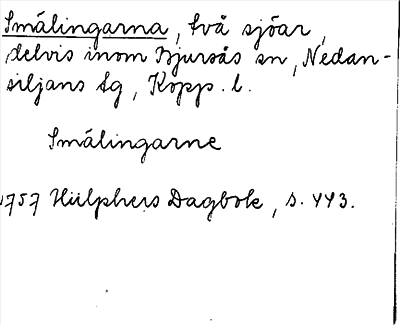 Smålingarna, två sjöar,
delvis inom Bjursås sn, Nedan-
siljans tg, Kopp. l.
Smålingarne
1757 Hülphers Dagbok, s. 443.